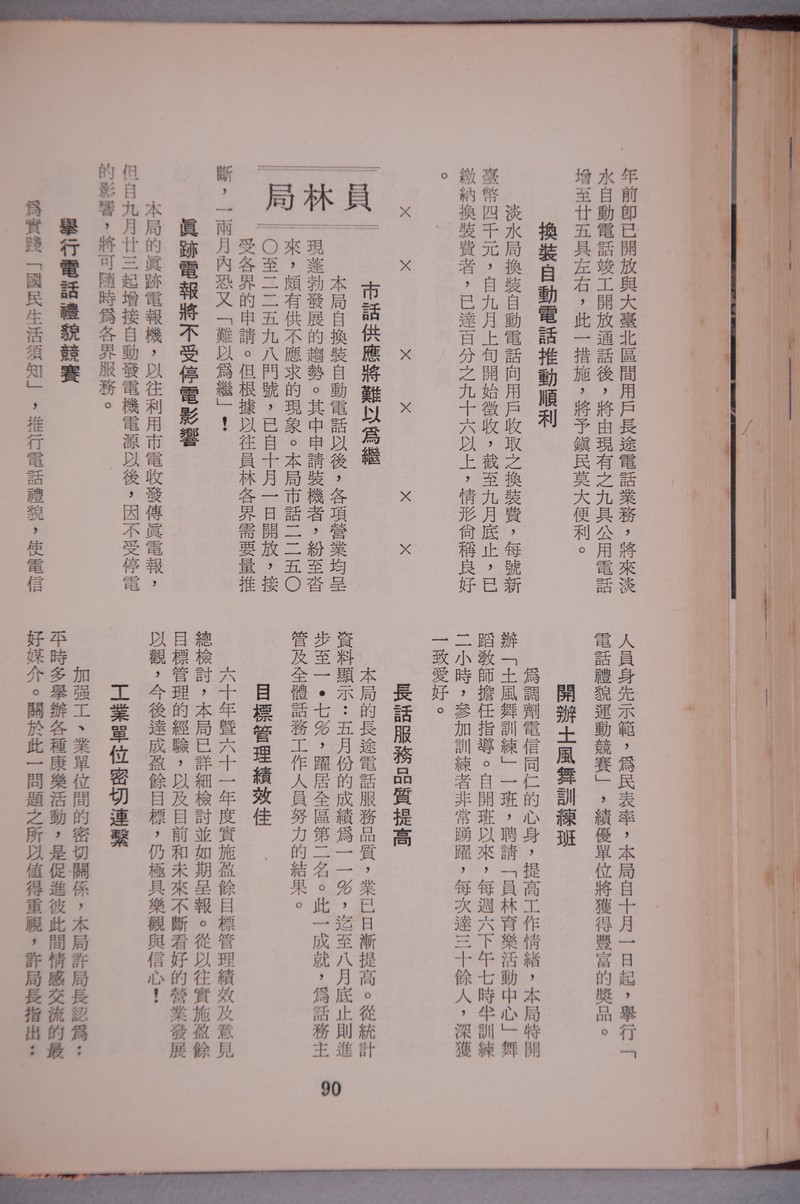 年前卽已開放與大臺北區間用戶長途電話業務，將來淡
水自動電話竣工開放通話後，將由現有之九具公用電話
增至廿五具左右，此一措施，將予鎭民莫大便利。
換裝自動電話推動順利
淡水局換裝自動電話向用戶收取之換裝費，每號新
臺幣四千元，自九月上旬開始徵收，截至九月底止，已
繳納換裝費者，已達百分之九十六以上，情形尙稱良好
。
×　×　×　×　×　×
員林局
市話供應將難以爲繼
本局自換裝自動電話以後，各項營業均呈
現蓬勃發展的趨勢。其中申請裝機者，紛至沓
來，頗有供不應求的現象。本局市話二二五〇
〇至二二五九八門號，已自十月一日開放，接
受各界的申請。但根據以往員林各界需要量推
斷，一兩月內恐又「難以爲繼」！
眞跡電報將不受停電影響
本局的眞跡電報機，以往利用市電收發傳眞電報，
但自九月廿三起增接自動發電機電源以後，因不受停電
的影響，將可隨時爲各界服務。
舉行電話禮貌競賽
爲實踐「國民生活須知」，推行電話禮貌，使電信
人員身先示範，爲民表率，本局自十月一日起，舉行「
電話禮貌運動競賽」，績優單位將獲得豐富的獎品。
開辦土風舞訓練班
爲調劑電信同仁的心身，提高工作情緒，本局特開
辦「土風舞訓練」一班，聘請「員林育樂活動中心」舞
蹈敎師擔任指導。自開班以來，每週六下午七時半訓練
二小時，參加訓練者非常踴躍，每次達三十餘人，深獲
一致愛好。
長話服務品質提高
本局的長途電話服務品質，業已日漸提高。從統計
資料顯示：五月份的成績爲一一％，迄至八月底止則進
步至一•七％，躍居全區第二名。此一成就，爲話務主
管及全體話務工作人員努力的結果。
目標管理績效佳
六十年暨六十一年度實施盈餘目標管理績效及意見
總檢討，本局已詳細檢討並如期呈報。從以往實施盈餘
目標管理的經驗，以及目前和未來不斷看好的營業發展
以觀，今後達成盈餘目標，仍極具樂觀與信心！
工業單位密切連繫
加强工、業單位間的密切關係，本局許局長認爲：
平時多舉辦各種康樂活動，是促進彼此間情感交流的最
好媒介。關於此一問題之所以值得重視，許局長指出：
90